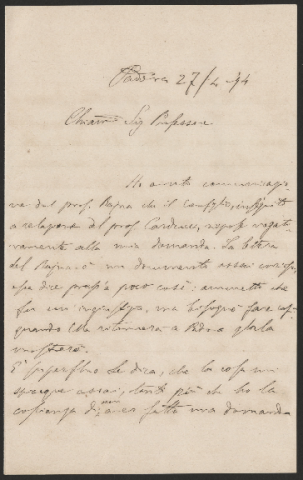 Padova 27/4 94
Chiar.mo Sig Professore
Ho avuto comunicazio-
ne dal prof. Rajna che il Consiglio, in seguito
a relazione del prof. Carducci, rispose negati-
vamente alla mia domanda. La lettera
del Rajna è un documento assai
dice presso a poco così: ammetto che
fu un ingiustizia, ma bisognò fare così
quando Ella ritornerà a Padova gliela
mostrerò.
E' superfluo Le dica, che la cosa mi
spiacque assai, tanto più che ho la
coscienza di non aver fatto una domanda